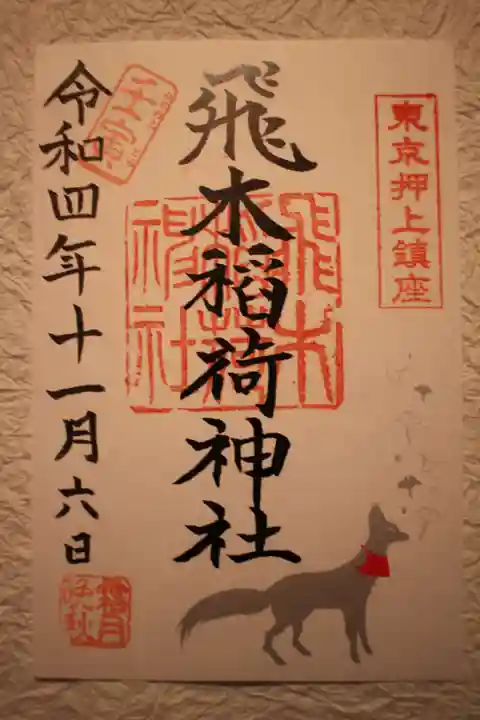 東京押上鎮座
飛木稲荷神社
飛木稲荷神社
令和四年十一月六日
霜月